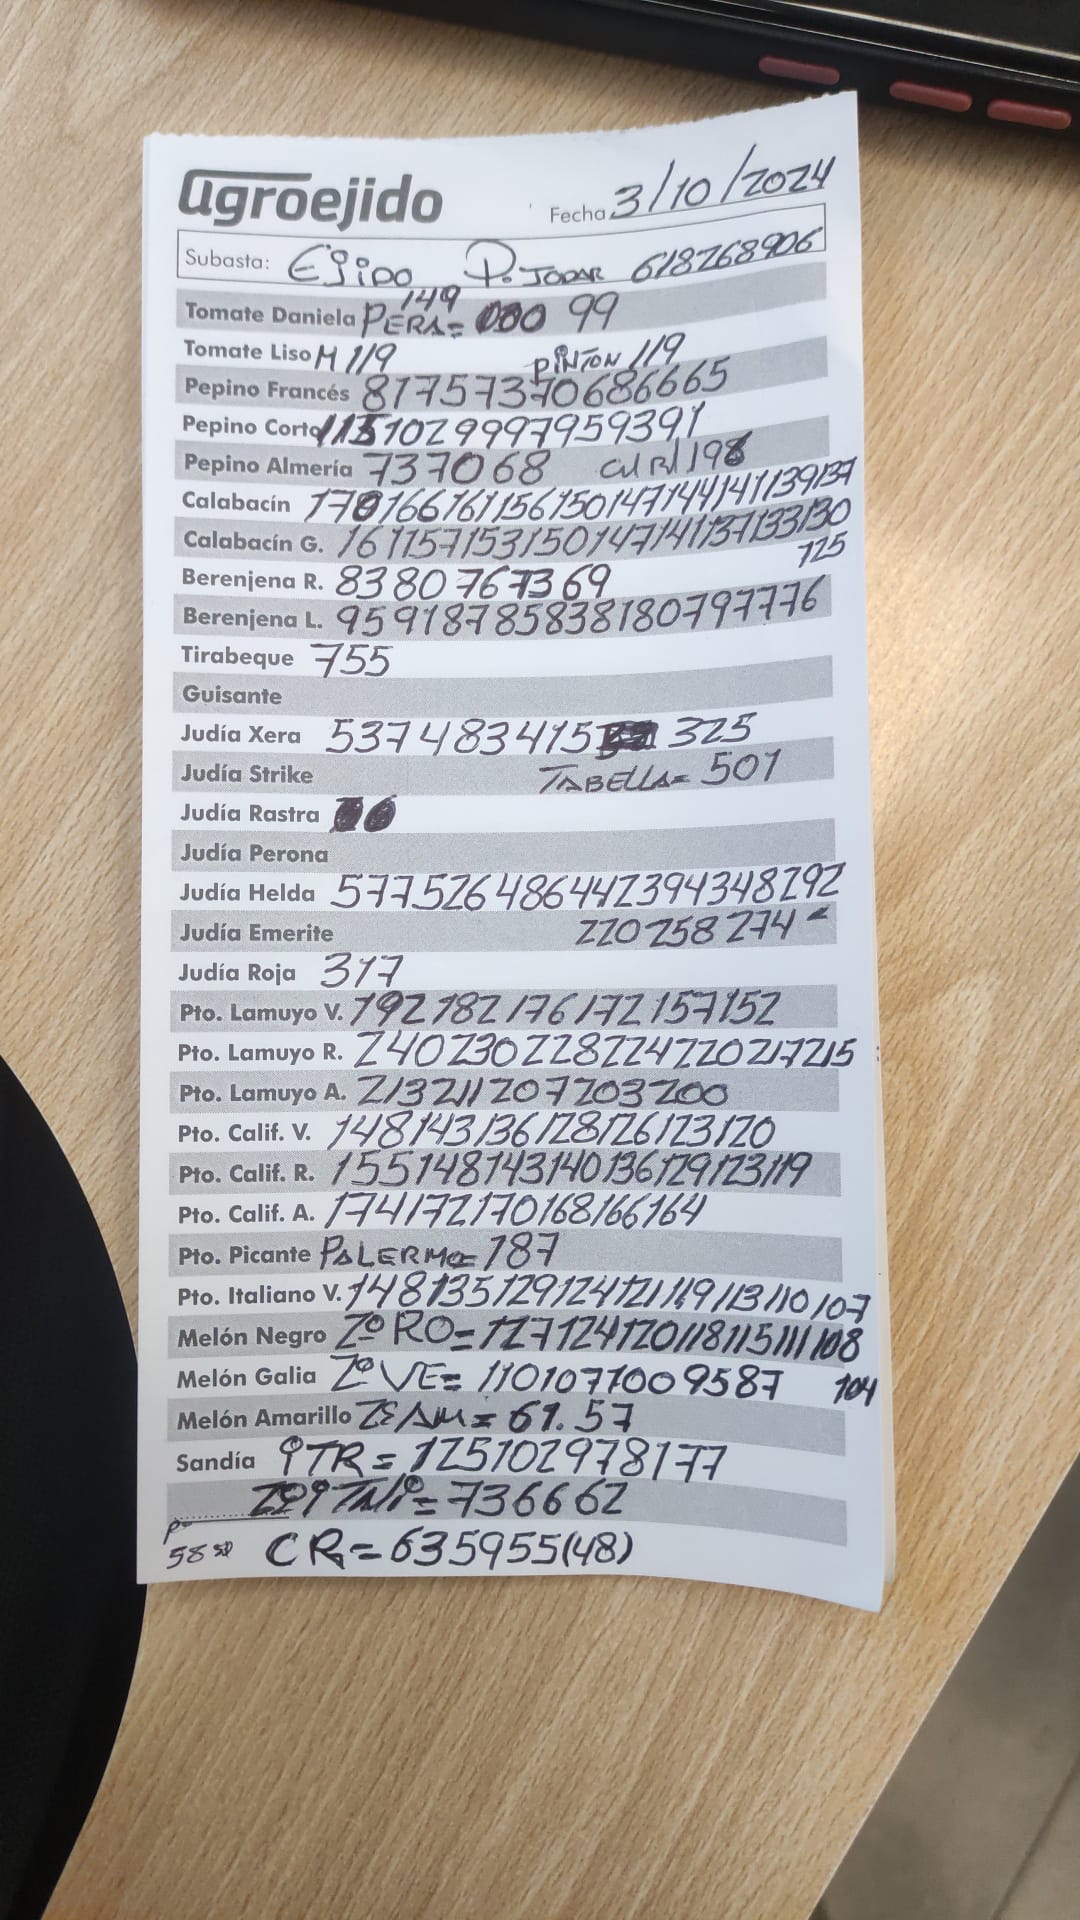 agroejido Fecha 3/10/2024
Subasta: Ejido P. JODAR 618268906
149
Tomate Daniela PERA= 99
Tomate Liso M 119 PINTON 119
Pepino Francés 81757370686665
Pepino Corto 1151029997959391
Pepino Almería 737068 198
Calabacín 170166161156150147144141139137
Calabacín G. 161157153150147141137133130
125
Berenjena R. 8380767369
Berenjena L. 95918785838180797776
Tirabeque 755
Guisante
Judía Xera 537483415 325
Judía Strike TABELLA= 501
Judía Rastra
Judía Perona
Judía Helda 577526486442394348292
Judía Emerite 220258274
Judía Roja 317
Pto. Lamuyo V. 192182176172157152
Pto. Lamuyo R. 240230228224220217215
Pto. Lamuyo A. 213211207203200
Pto. Calif. V. 148143136128126123120
Pto. Calif. R. 155148143140136129123119
Pto. Calif. A. 174172170168166164
Pto. Picante PALERMO= 187
Pto. Italiano V. 148135129124121119113110107
Melón Negro 2º RO= 127124120118115111108
Melón Galia 2º VE= 1101071009587 104
Melón Amarillo 2ª AM= 61.57
Sandía ITR= 125102978177
2º ITALI= 736662
P=
58 50 CR= 635955(48)